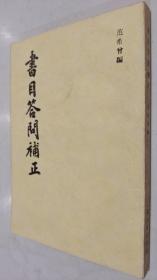 范希曾編
書目答問補正